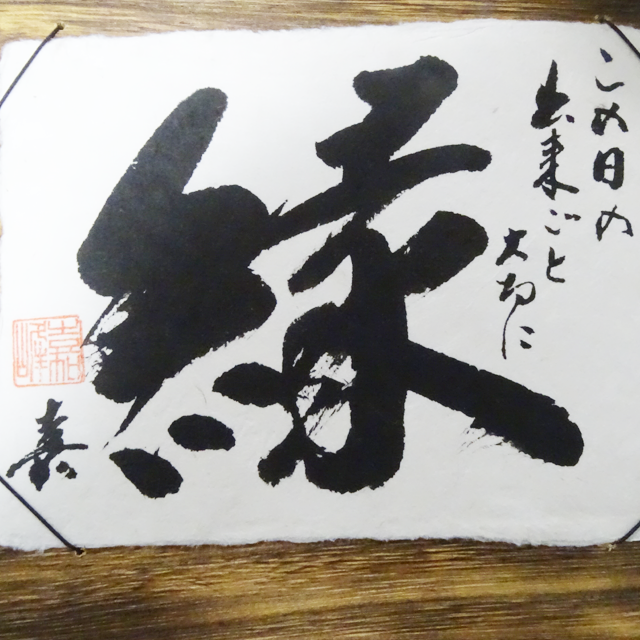 この日の
出来ごと
大切に
縁